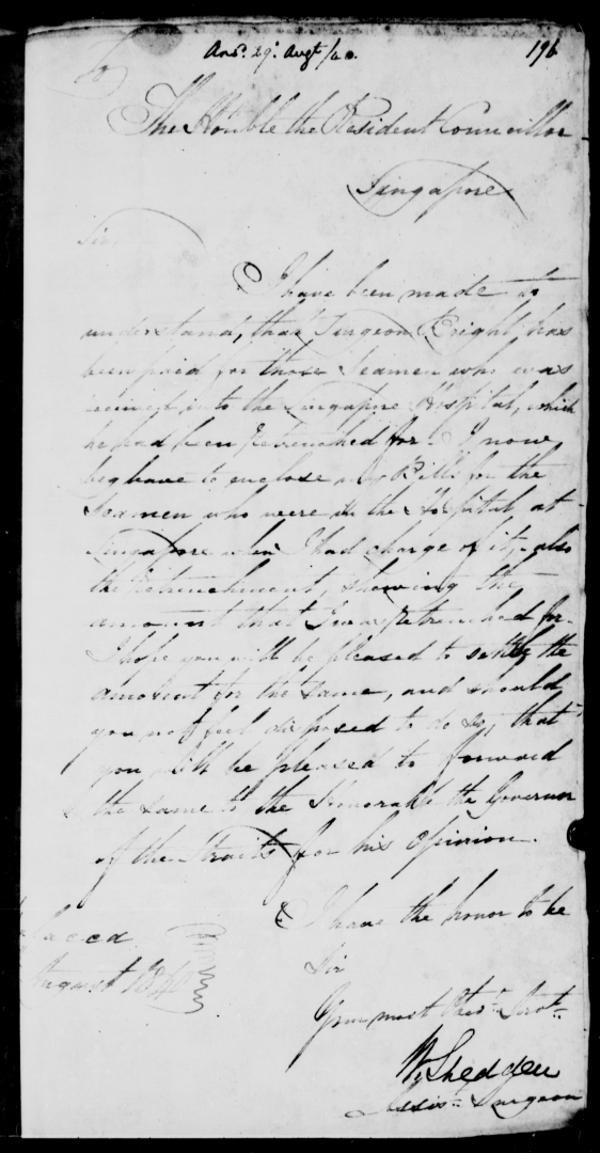 Ansd. 29th Augt /40.
196
To
The Honble the Resident Councillor
Singapore
Sir,
I have been made to
understand, that Surgeon Wright has
been paid for those Seamen who was
received into the Singapore Hospital, which
he had been retrenched for. I now
beg leave to enclose my Bills for the
Seamen who were in the Hospital at
Singapore when I had charge of it, also
the Retrenchment, showing the
amount that I was retrenched for.
I hope you will be pleased to settle the
amount for the same, and should
you not feel disposed to do so, that
you will be pleased to forward
the same to the Honorable the Governor
of the Straits for his opinion.
I have the honor to be
Sir
Your most Obedt. Servt.
lacca
August 1840
Assist. Surgeon